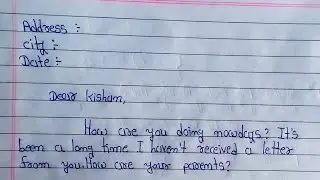 Address :-
city :-
Date :-
Dear Kishan,
How are you doing nowdays? It's
been a long time I haven't received a letter
from you. How are your parents?